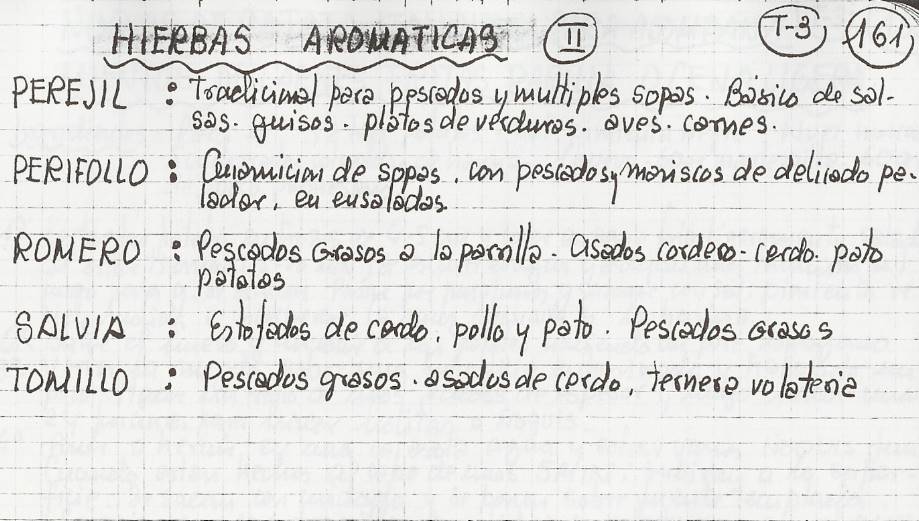 HIERBAS AROMATICAS II T-3 161
PEREJIL : Tradicional para pescados y multiples sopas. Básico de sal-
sas. guisos. platos de verduras. aves. carnes.
PERIFOLLO : Guarnicion de sopas. con pescados y mariscos de delicado pa-
ladar, en ensaladas.
ROMERO : Pescados Grasos a la parrilla. Asados cordero-cerdo. pato
patatas
SALVIA : Estofados de cerdo, pollo y pato. Pescados Grasos
TOMILLO : Pescados grasos. asados de cerdo, Ternera volateria